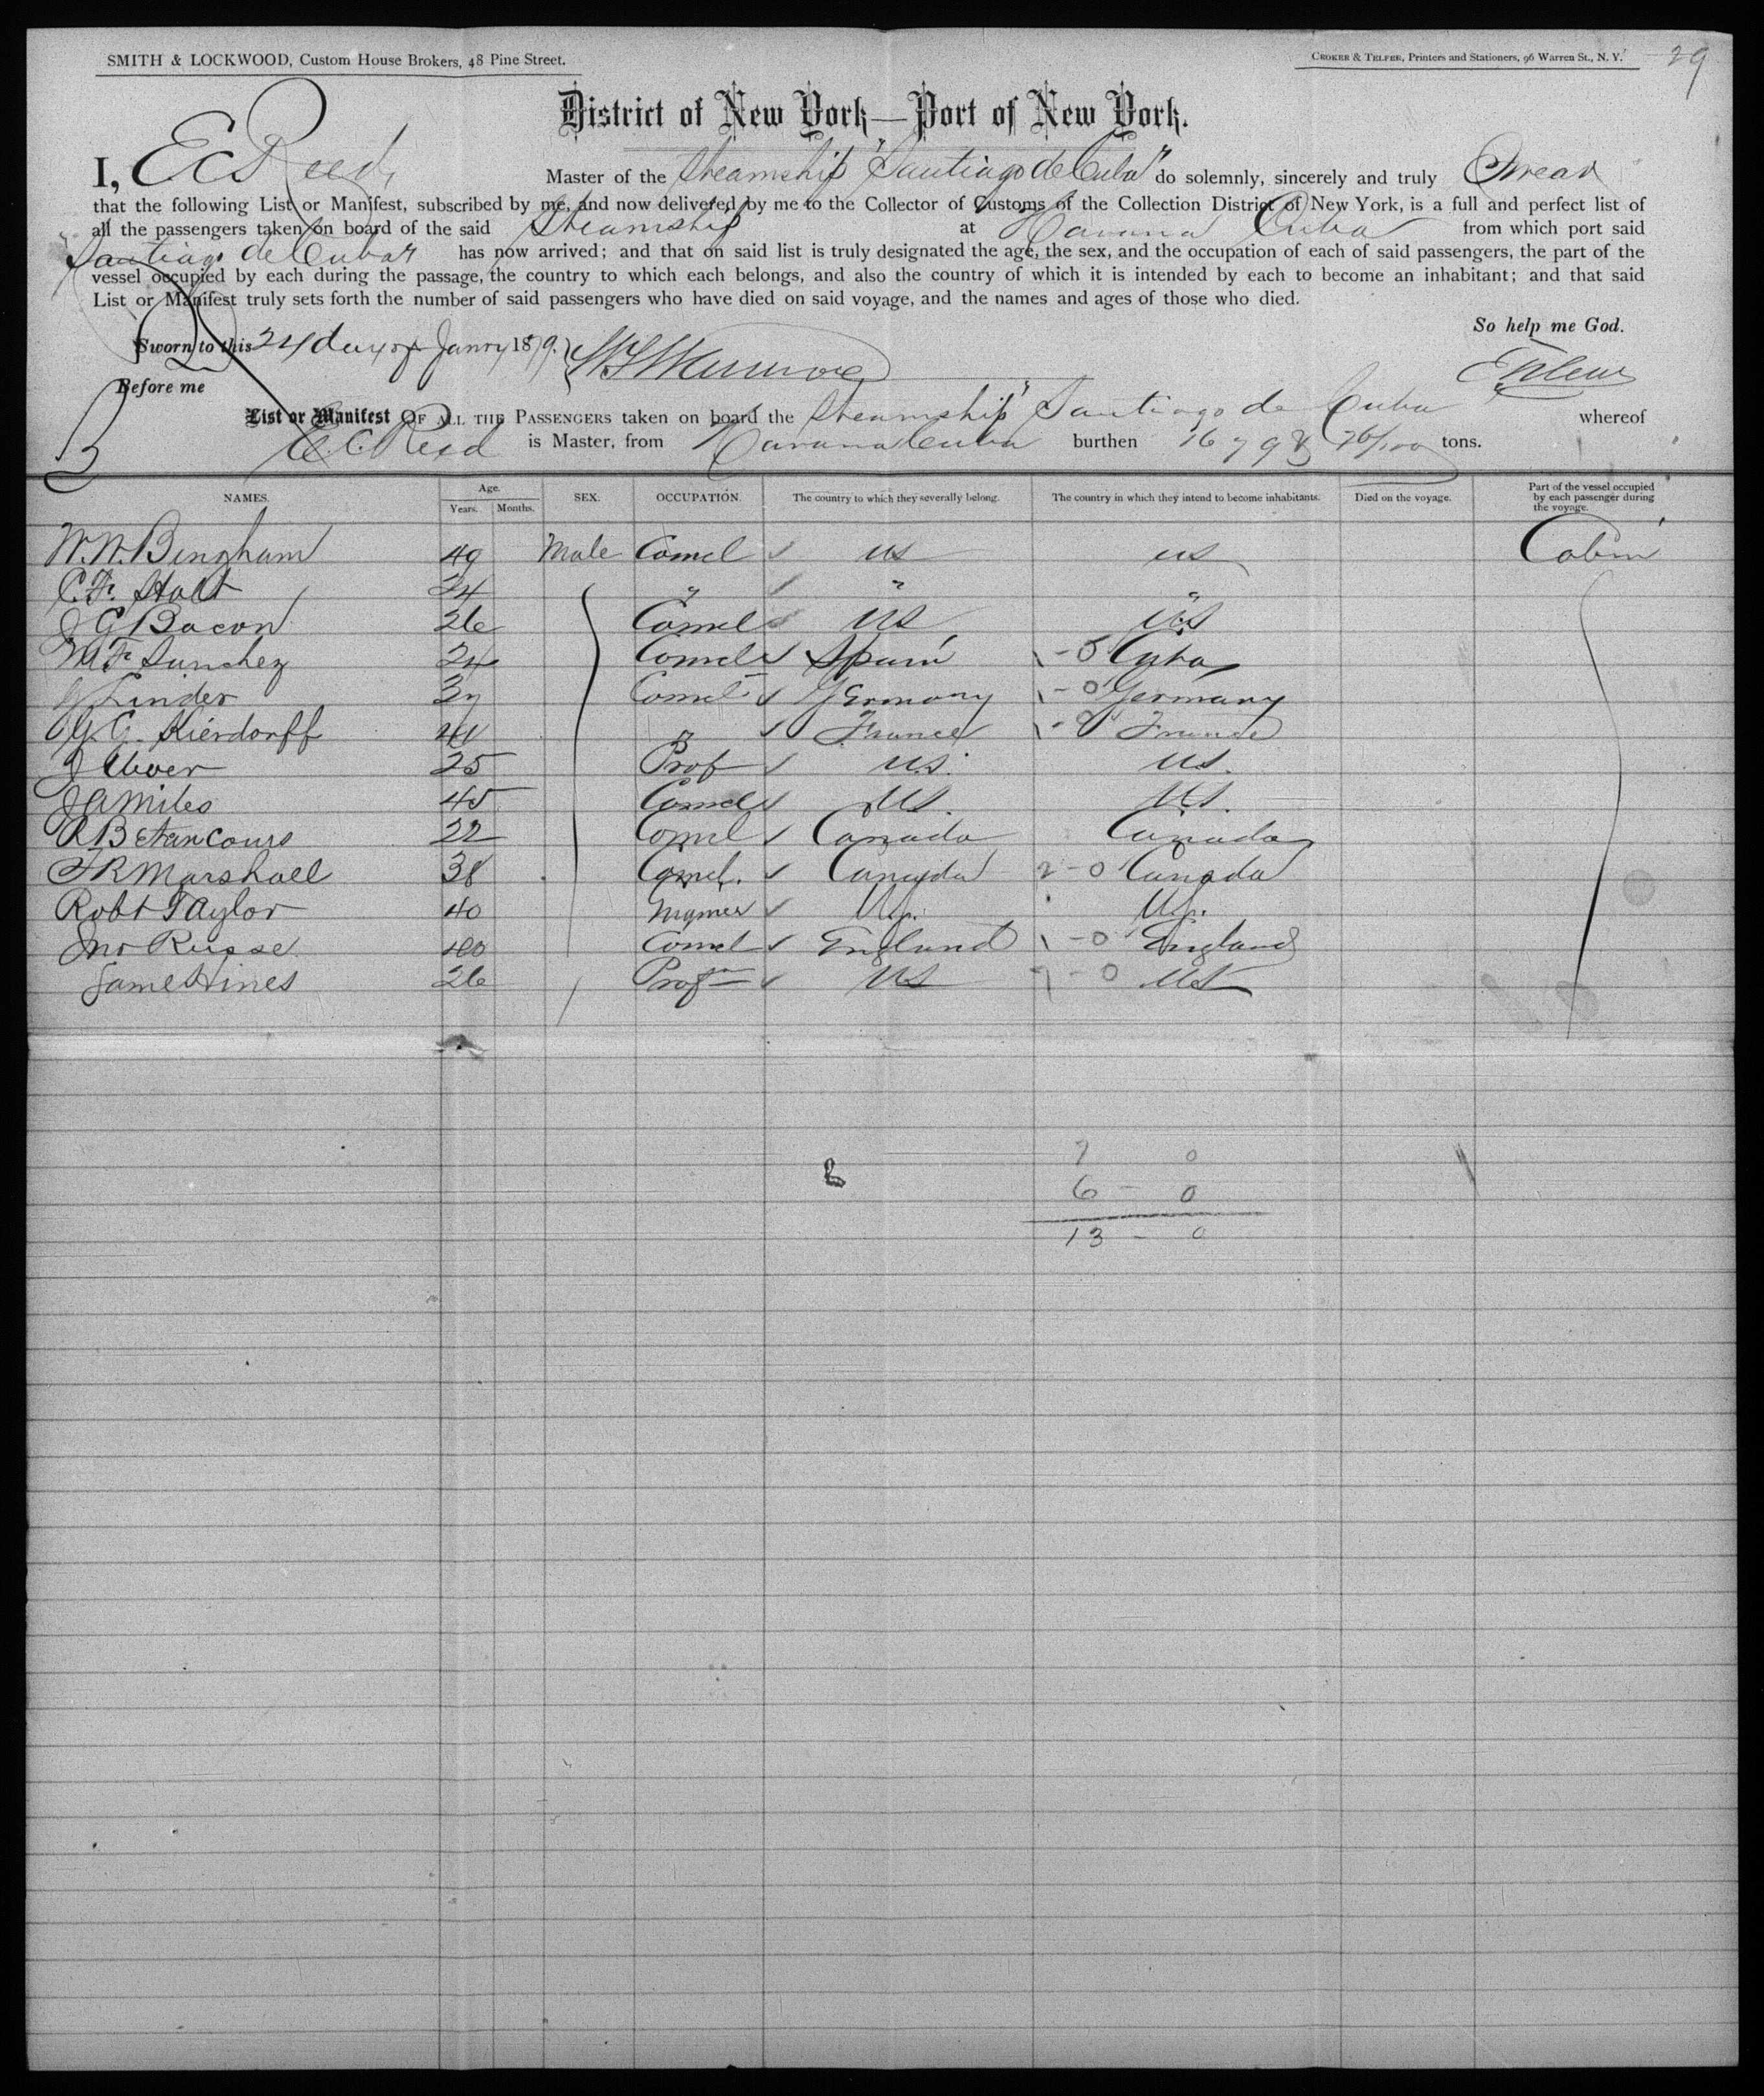 SMITH & LOCKWOOD, Custom House Brokers, 48 Pine Street.
CROKER & TELFER, Printers and Stationers, 96 Warren St., N. Y.
29
District of New York—Port of New York.
I, E C Reed, Master of the Steamship "Santiago de Cuba" do solemnly, sincerely and truly Swear
that the following List or Manifest, subscribed by me, and now delivered by me to the Collector of Customs of the Collection District of New York, is a full and perfect list of
all the passengers taken on board of the said Steamship at Havana Cuba from which port said
Santiago de Cuba" has now arrived; and that on said list is truly designated the age, the sex, and the occupation of each of said passengers, the part of the
vessel occupied by each during the passage, the country to which each belongs, and also the country of which it is intended by each to become an inhabitant; and that said
List or Manifest truly sets forth the number of said passengers who have died on said voyage, and the names and ages of those who died.
So help me God.
Sworn to this 24 day of Janry 1879.
Before me
List or Manifest OF ALL THE PASSENGERS taken on board the Steamship "Santiago de Cuba whereof
E. C. Reed is Master, from Havana Cuba burthen 1679 & 76/100 tons.
NAMES. Age. Years. Months. SEX. OCCUPATION. The country to which they severally belong. The country in which they intend to become inhabitants. Died on the voyage. Part of the vessel occupied by each passenger during the voyage.
W. W. Bingham 49 Male Comcl us us Cabin
C. F. Holt 24 " " "
J G Bacon 26 Comcl US US
M F Sanchez 24 Comcl Spain 1 - 0 Cuba
J Linder Comcl Germany 1 - 0 Germany
G. Kierdorff " France 1 - 0 France
J 25 Prof U.S. U.S.
J A Miles 45 Comcl US. US.
R Betancours 22 Comcl Canada Canada
F R Marshall 38 Comcl. Canada 2 - 0 Canada
Robt Taylor 40 U.S. U.S.
Jno Russe 40 Comcl England 1 - 0 England
James Hines 26 Prof US 7 - 0 US
7 0
6 - 0
13 - 0